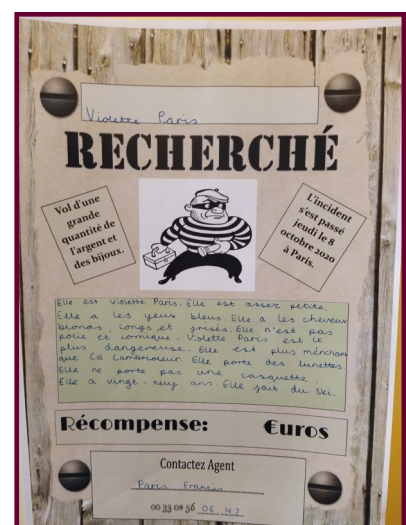 Violette Paris
RECHERCHÉ
Vol d'une
grande
quantité de
l'argent et
des bijoux.
L'incident
s'est passé
jeudi le 8
octobre 2020
à Paris.
Elle est Violette Paris. Elle est assez petite.
Elle a les yeux bleus. Elle a les cheveux
blonds, longs et frisés. Elle n'est pas
polie et comique. Violette Paris est le
plus dangereuse. Elle est plus ménchant
que Col Lambrioleur. Elle porte des lunettes
Elle ne porte pas une casquette.
Elle a vingt-neuf ans. Elle fait du ski.
Récompense: €uros
Contactez Agent
Paris Francis
00 33 08 56 06 47